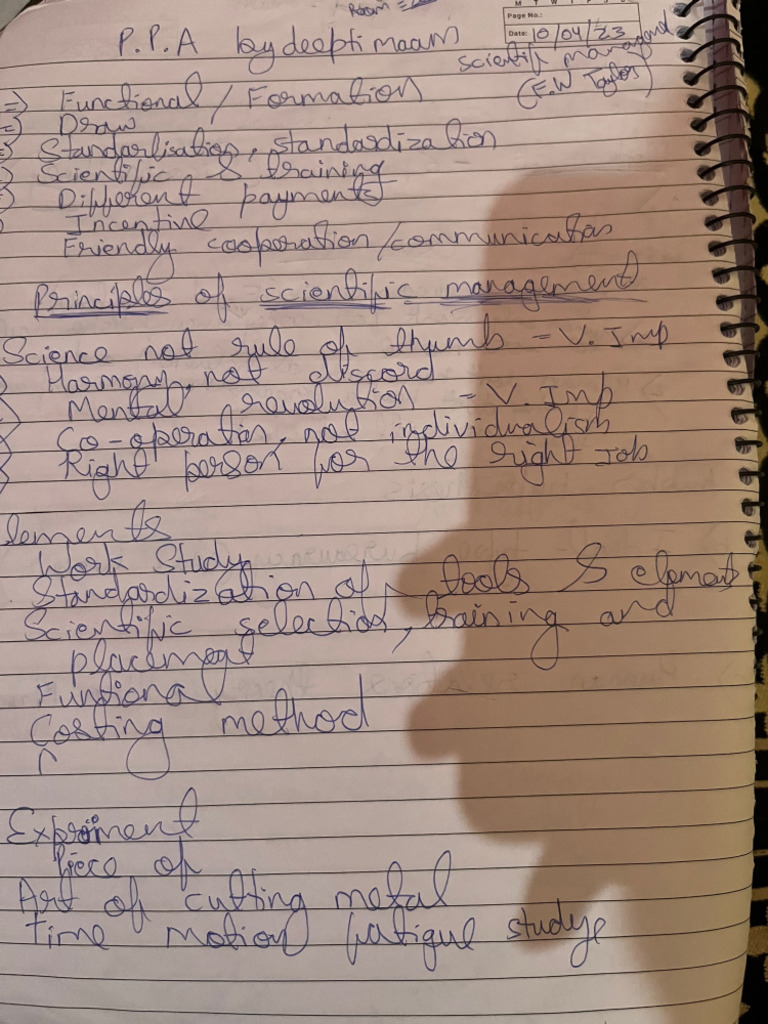 Room =
Page No.:
P.P.A by deepti maam
Date: 10/04/23
scientific managend
(F.W Taylor)
=) Functional / Formation
=) Draw
Standarlisation, standardization
Scientific & training
Different payments
Incentive
Friendly cooperation/communication
Principles of scientific management
Science not rule of thumb = V. Imp
Harmony, not discord
Mental revolution = V. Imp
Co-operation, not individualism
Right person for the right Job
lements
Work Study
Standardization of tools & element
Scientific selection, training and
placement
Funtional
Costing method
Expriment
Piece of
Art of cutting metal
Time motion fatigue study